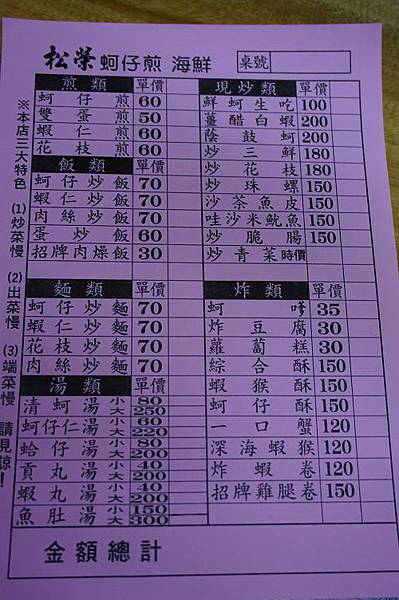 松榮 蚵仔煎 海鮮 桌號
※本店三大特色 (1)炒菜慢 (2)出菜慢 (3)端菜慢 請見諒!
煎類 單價
蚵仔煎 60
雙蛋煎 50
蝦仁煎 60
花枝煎 60
飯類 單價
蚵仔炒飯 70
蝦仁炒飯 70
肉絲炒飯 70
蛋炒飯 60
招牌肉燥飯 30
麵類 單價
蚵仔炒麵 70
蝦仁炒麵 70
花枝炒麵 70
肉絲炒麵 70
湯類 單價
清蚵湯 小 80 大 250
蚵仔仁湯 小 60 大 220
蛤仔湯 小 80 大 200
貢丸湯 小 40 大 200
蝦丸湯 小 40 大 200
魚肚湯 小 150 大 300
現炒類 單價
鮮蚵生吃 100
薑醋白蝦 200
蔭鼓蚵 200
炒三鮮 180
炒花枝 180
炒珠螺 150
沙茶魚皮 150
哇沙米魷魚 150
炒脆腸 150
炒青菜 時價
炸類 單價
蚵嗲 35
炸豆腐 30
蘿蔔糕 30
綜合酥 150
蝦猴酥 150
蚵仔酥 150
一口蟹 120
深海蝦猴 120
炸蝦卷 120
招牌雞腿卷 150
金額總計